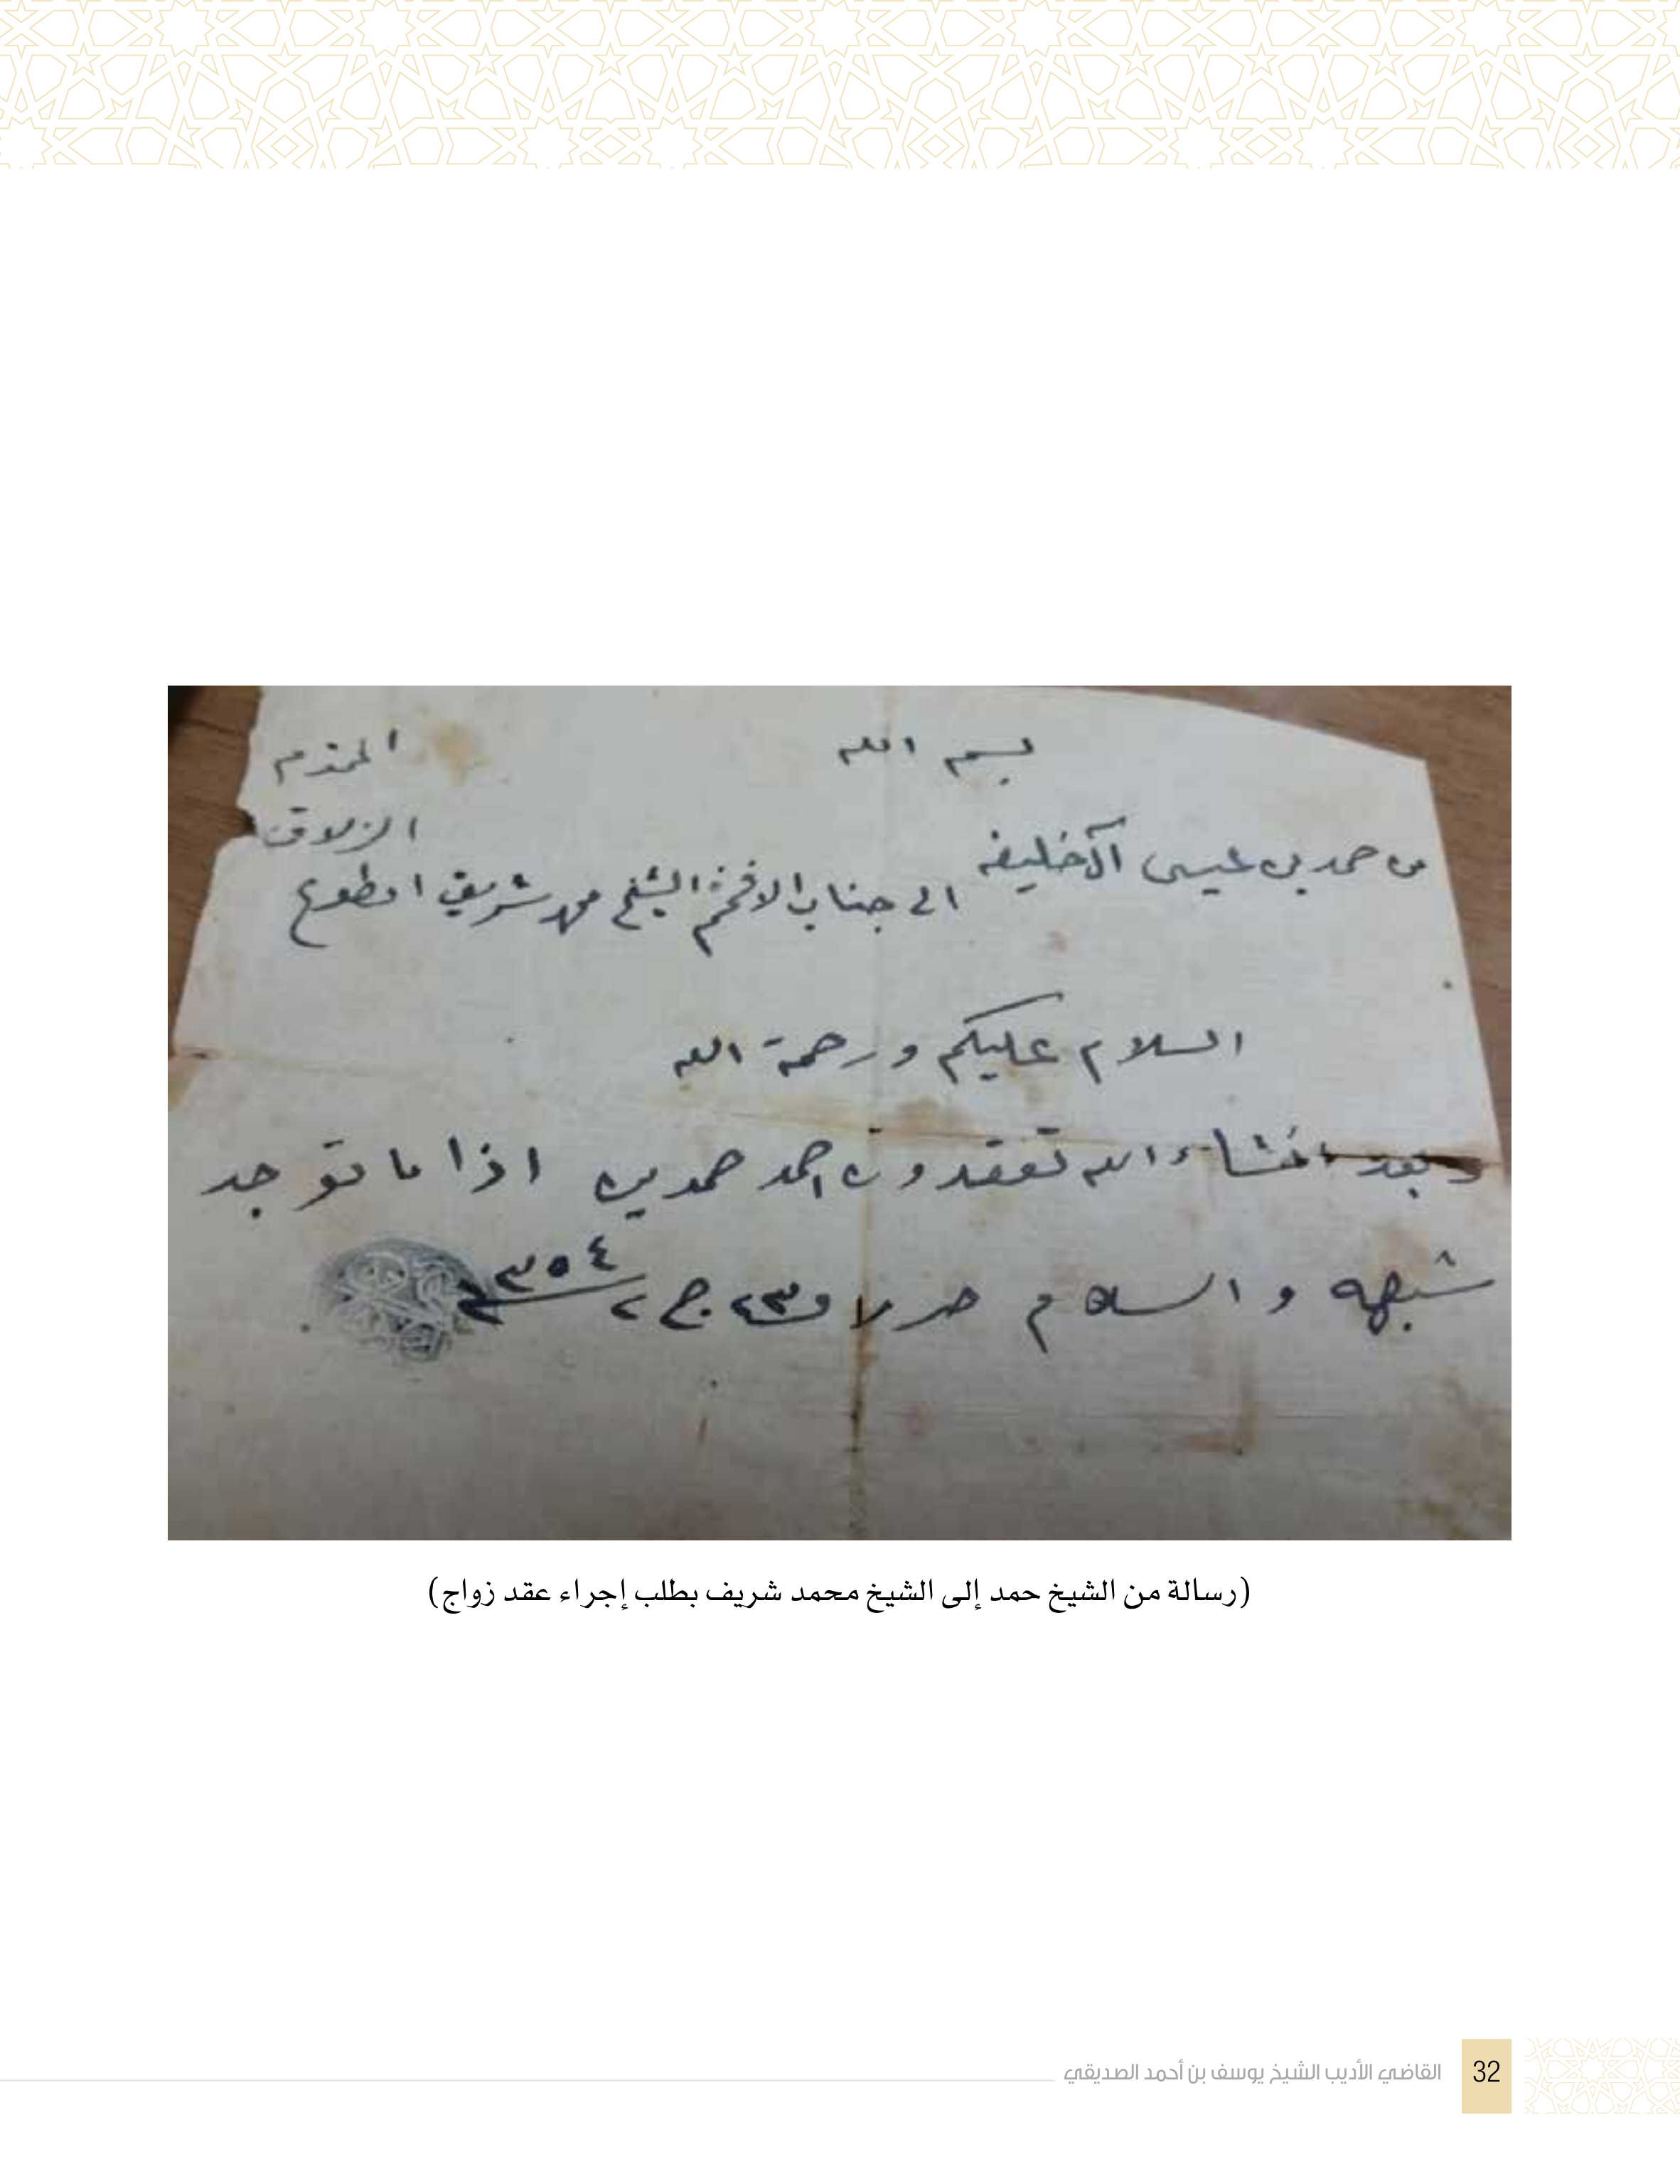 بسم الله
المحترم
من حمد بن عيسى آل خليفه
الى جناب الافخم الشيخ محمد شريف امطوع
الزلاق
السلام عليكم ورحمة الله
وبعد انشاء الله تعقدون احمد حمد بن اذا ما توجد
شبهه والسلام حرر
ج٢
(رسالة من الشيخ حمد إلى الشيخ محمد شريف بطلب إجراء عقد زواج)
القاضي الأديب الشيخ يوسف بن أحمد الصديقي
32